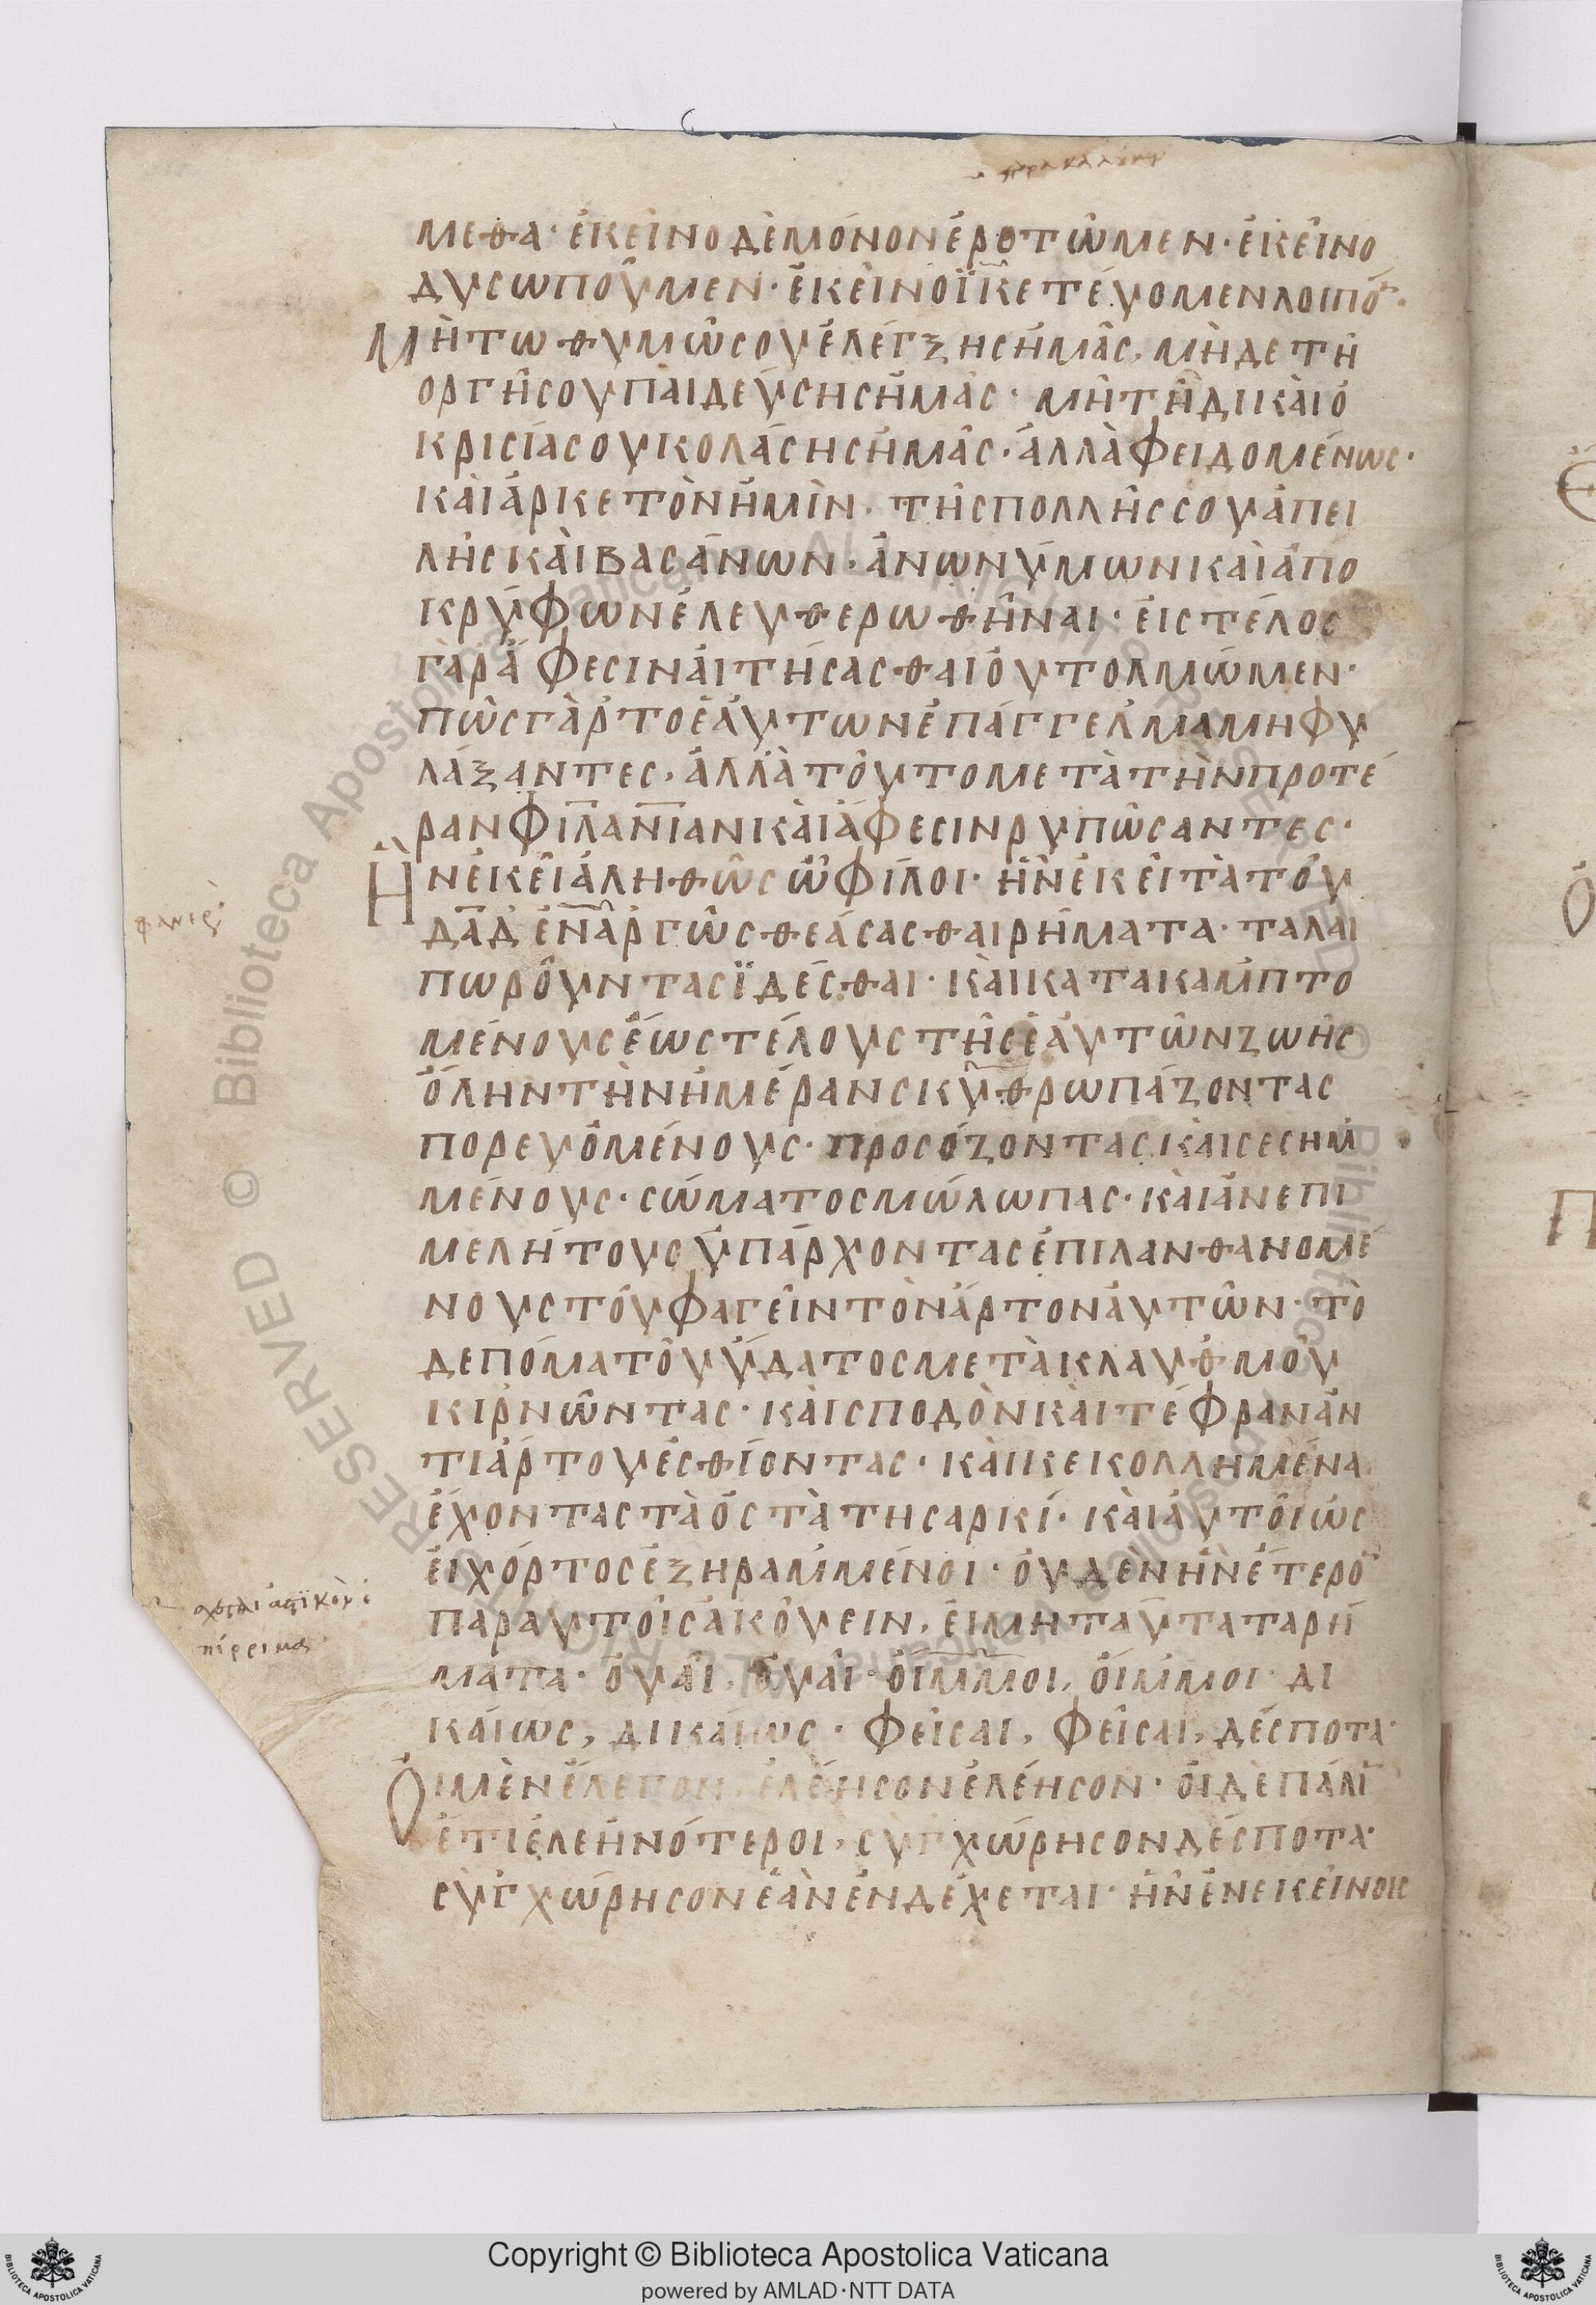 μεθα· ἐκεῖνο δὲ μόνον ἐροτῶμεν· ἐκεῖνο
δυσωποῦμεν· ἐκεῖνο ἱκετεύομεν λοιπό̅·
Μὴ τω θυμῶ σου ἐλέγξης ἡμᾶς, μὴ δε τῆ
ὀργῆ σου παιδεύσης ἡμᾶς· μὴ τῆ δικαιο
κρισία σου κολάσης ἡμᾶς· ἀλλὰ φειδομένως·
καὶ ἀρκετὸν ἡμῖν, τῆς πολλῆς σου ἀπει
λῆς καὶ βασάνων· ἀνωνύμων καὶ ἀπο
κρύφων ἐλευθερωθῆναι· εἰς τέλος
γὰρ ἄφεσιν αἰτήσασθαι οὐ τολμῶμεν·
πῶς γὰρ το ἑαυτων ἐπάγγελμα μη φυ
λάξαντες, ἀλλὰ τοῦτο μετὰ τὴν προτέ
ραν φιλανιαν καὶ ἄφεσιν ρυπῶσαντες·
Ἦν ἐκεῖ ἀληθῶς ὦ φίλοι· ἦν ἐκεῖ τὰ τοῦ
δαδ ἐναργῶς θεάσασθαι ρήματα· ταλαι
πωροῦντας ἰδέσθαι· καὶ κατακαμπτο
μένους ἕως τέλους τῆς ἑαυτῶν ζωῆς
ὅλην τὴν ἡμέραν σκυθρωπάζοντας
πορευομένους· προσόζοντας καὶ σεσημ
μένους· σώματος μώλωπας· καὶ ἀνεπι
μελήτους ὑπάρχοντας ἐπιλανθανομέ
νους τοῦ φαγεῖν τὸν ἄρτον αὐτῶν· τὸ
δε πόμα τοῦ ὕδατος μετὰ κλαυθμοῦ
κιρνῶντας· καὶ σποδὸν καὶ τέφραν ἀν
τι ἄρτου ἐσθίοντας· καὶ κεκολλημένα
ἔχοντας τὰ ὀστὰ τη σαρκί· καὶ αὐτοὶ ὡς
εἰ χόρτος ἐξηραμμένοι· οὐδὲν ἦν ἕτερο̅
παρ αυτοῖς ἀκούειν, εἰ μη ταῦτα τα ρή
ματα· οὐαὶ, οὐαὶ· οἴμμοι, οἴμμοι· δι
καίως, δικαίως· φεῖσαι, φεῖσαι, δέσποτα·
Οἱ μὲν ἔλεγον, ἐλέησον ἐλέησον· οἱ δὲ πάλι̅
ἔτι ἐλεηνότεροι, συγχώρησον δέσποτα·
συγχώρησον ἐὰν ἐνδέχεται· ἦν ἐν ἐκείνοις
Copyright © Biblioteca Apostolica Vaticana
powered by AMLAD·NTT DATA